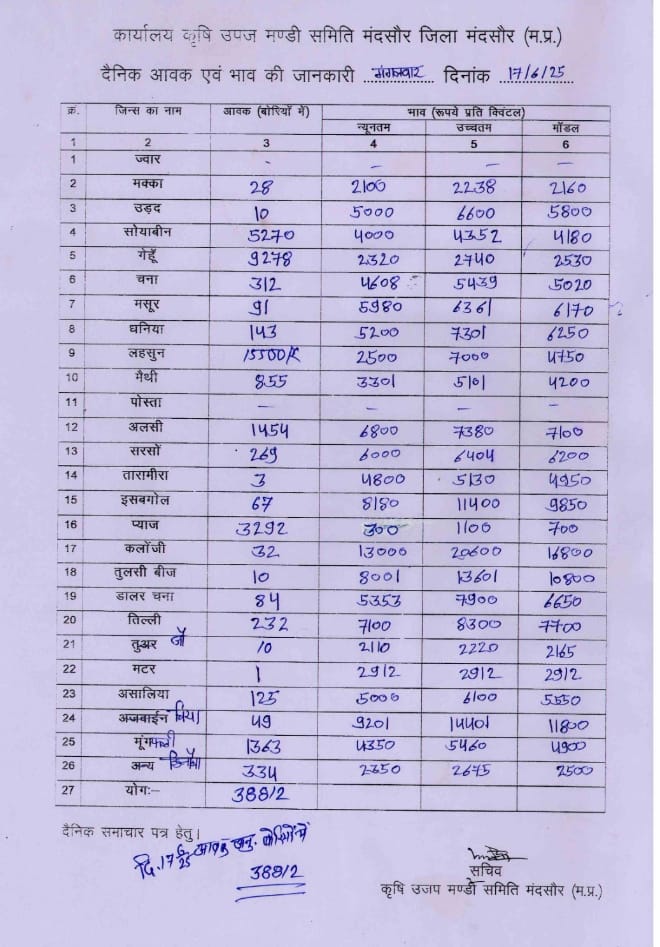 कार्यालय कृषि उपज मण्डी समिति मंदसौर जिला मंदसौर (म.प्र.)
दैनिक आवक एवं भाव की जानकारी मंगलवार दिनांक 17/6/25
क्र. जिन्स का नाम आवक (बोरियों में) भाव (रूपये प्रति क्विंटल)
न्यूनतम उच्चतम मॉडल
1 2 3 4 5 6
1 ज्वार - - - -
2 मक्का 28 2100 2238 2160
3 उड़द 10 5000 6600 5800
4 सोयाबीन 5270 4000 4352 4180
5 गेहूँ 9278 2320 2740 2530
6 चना 312 4608 5439 5020
7 मसूर 91 5980 6361 6170
8 धनिया 143 5200 7301 6250
9 लहसुन 15500/K 2500 7000 4750
10 मैथी 855 3301 5101 4200
11 पोस्ता - - - -
12 अलसी 1454 6800 7380 7100
13 सरसों 269 6000 6404 6200
14 तारामीरा 3 4800 5130 4950
15 इसबगोल 67 8180 11400 9850
16 प्याज 3292 300 1100 700
17 कलोंजी 32 13000 20600 16800
18 तुलसी बीज 10 8001 13601 10800
19 डालर चना 84 5353 7900 6650
20 तिल्ली 232 7100 8300 7700
21 तुअर जौ 10 2110 2220 2165
22 मटर 1 2912 2912 2912
23 असालिया 125 5000 6100 5550
24 अजवाईन चिया 49 9201 14401 11800
25 मूंगफली 1363 4350 5460 4900
26 अन्य 334 2350 2675 2500
27 योगः- 38812
दैनिक समाचार पत्र हेतु।
दि. 17/6/25 आवक अनु. बोरियों में
38812
सचिव
कृषि उजप मण्डी समिति मंदसौर (म.प्र.)